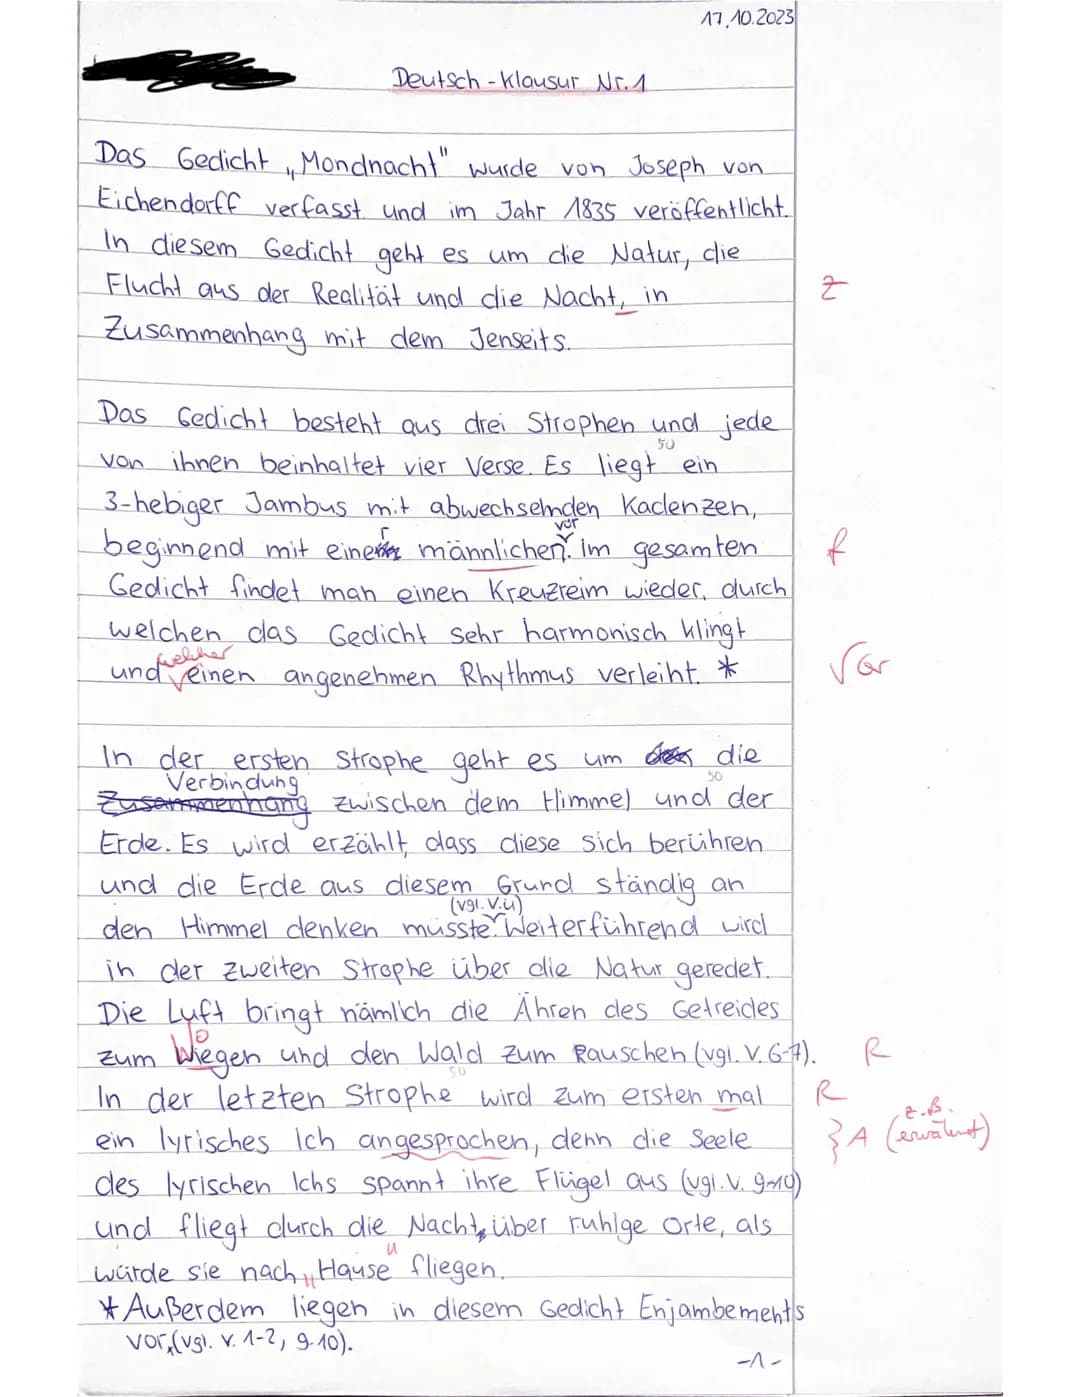 17.10.2023
Deutsch-Klausur Nr.1
Das Gedicht „Mondnacht" wurde von Joseph von
Eichendorff verfasst und im Jahr 1835 veröffentlicht.
In diesem Gedicht geht es um die Natur, die
Flucht aus der Realität und die Nacht, in
Z
Zusammenhang mit dem Jenseits.
Das Gedicht besteht aus drei Strophen und jede
50
von ihnen beinhaltet vier Verse. Es liegt ein
3-hebiger Jambus mit abwechselnden Kadenzen,
vor
beginnend mit einer männlichen. im gesamten
f
Gedicht findet man einen Kreuzreim wieder, durch
welchen das Gedicht sehr harmonisch klingt
welcher
und einen angenehmen Rhythmus verleiht. *
√Gr
In der ersten Strophe geht es um die
Verbindung
50
Zusammenhang zwischen dem Himmel und der
Erde. Es wird erzählt, dass diese sich berühren
und die Erde aus diesem Grund ständig an
(vgl. V.4)
den Himmel denken müsste. Weiterführend wird
in der zweiten Strophe über die Natur geredet.
Die Luft bringt nämlich die Ähren des Getreides
zum Wiegen und den Wald zum Rauschen (vgl. V. 6-7).
R
50
In der letzten Strophe wird zum ersten mal
R
ein lyrisches Ich angesprochen, denn die Seele
} A (z.B. erwähnt)
des lyrischen Ichs spannt ihre Flügel aus (vgl. V. 9-10)
und fliegt durch die Nacht, über ruhige Orte, als
würde sie nach „Hause" fliegen.
* Außerdem liegen in diesem Gedicht Enjambements
vor, (vgl. V. 1-2, 9-10).
-1-